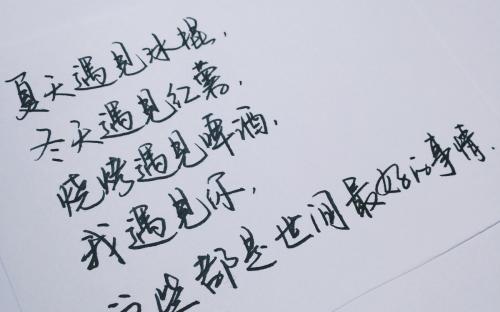 夏天遇见冰棍,
冬天遇见红薯,
烧烤遇见啤酒,
我遇见你,
这些都是世间最好的事情.